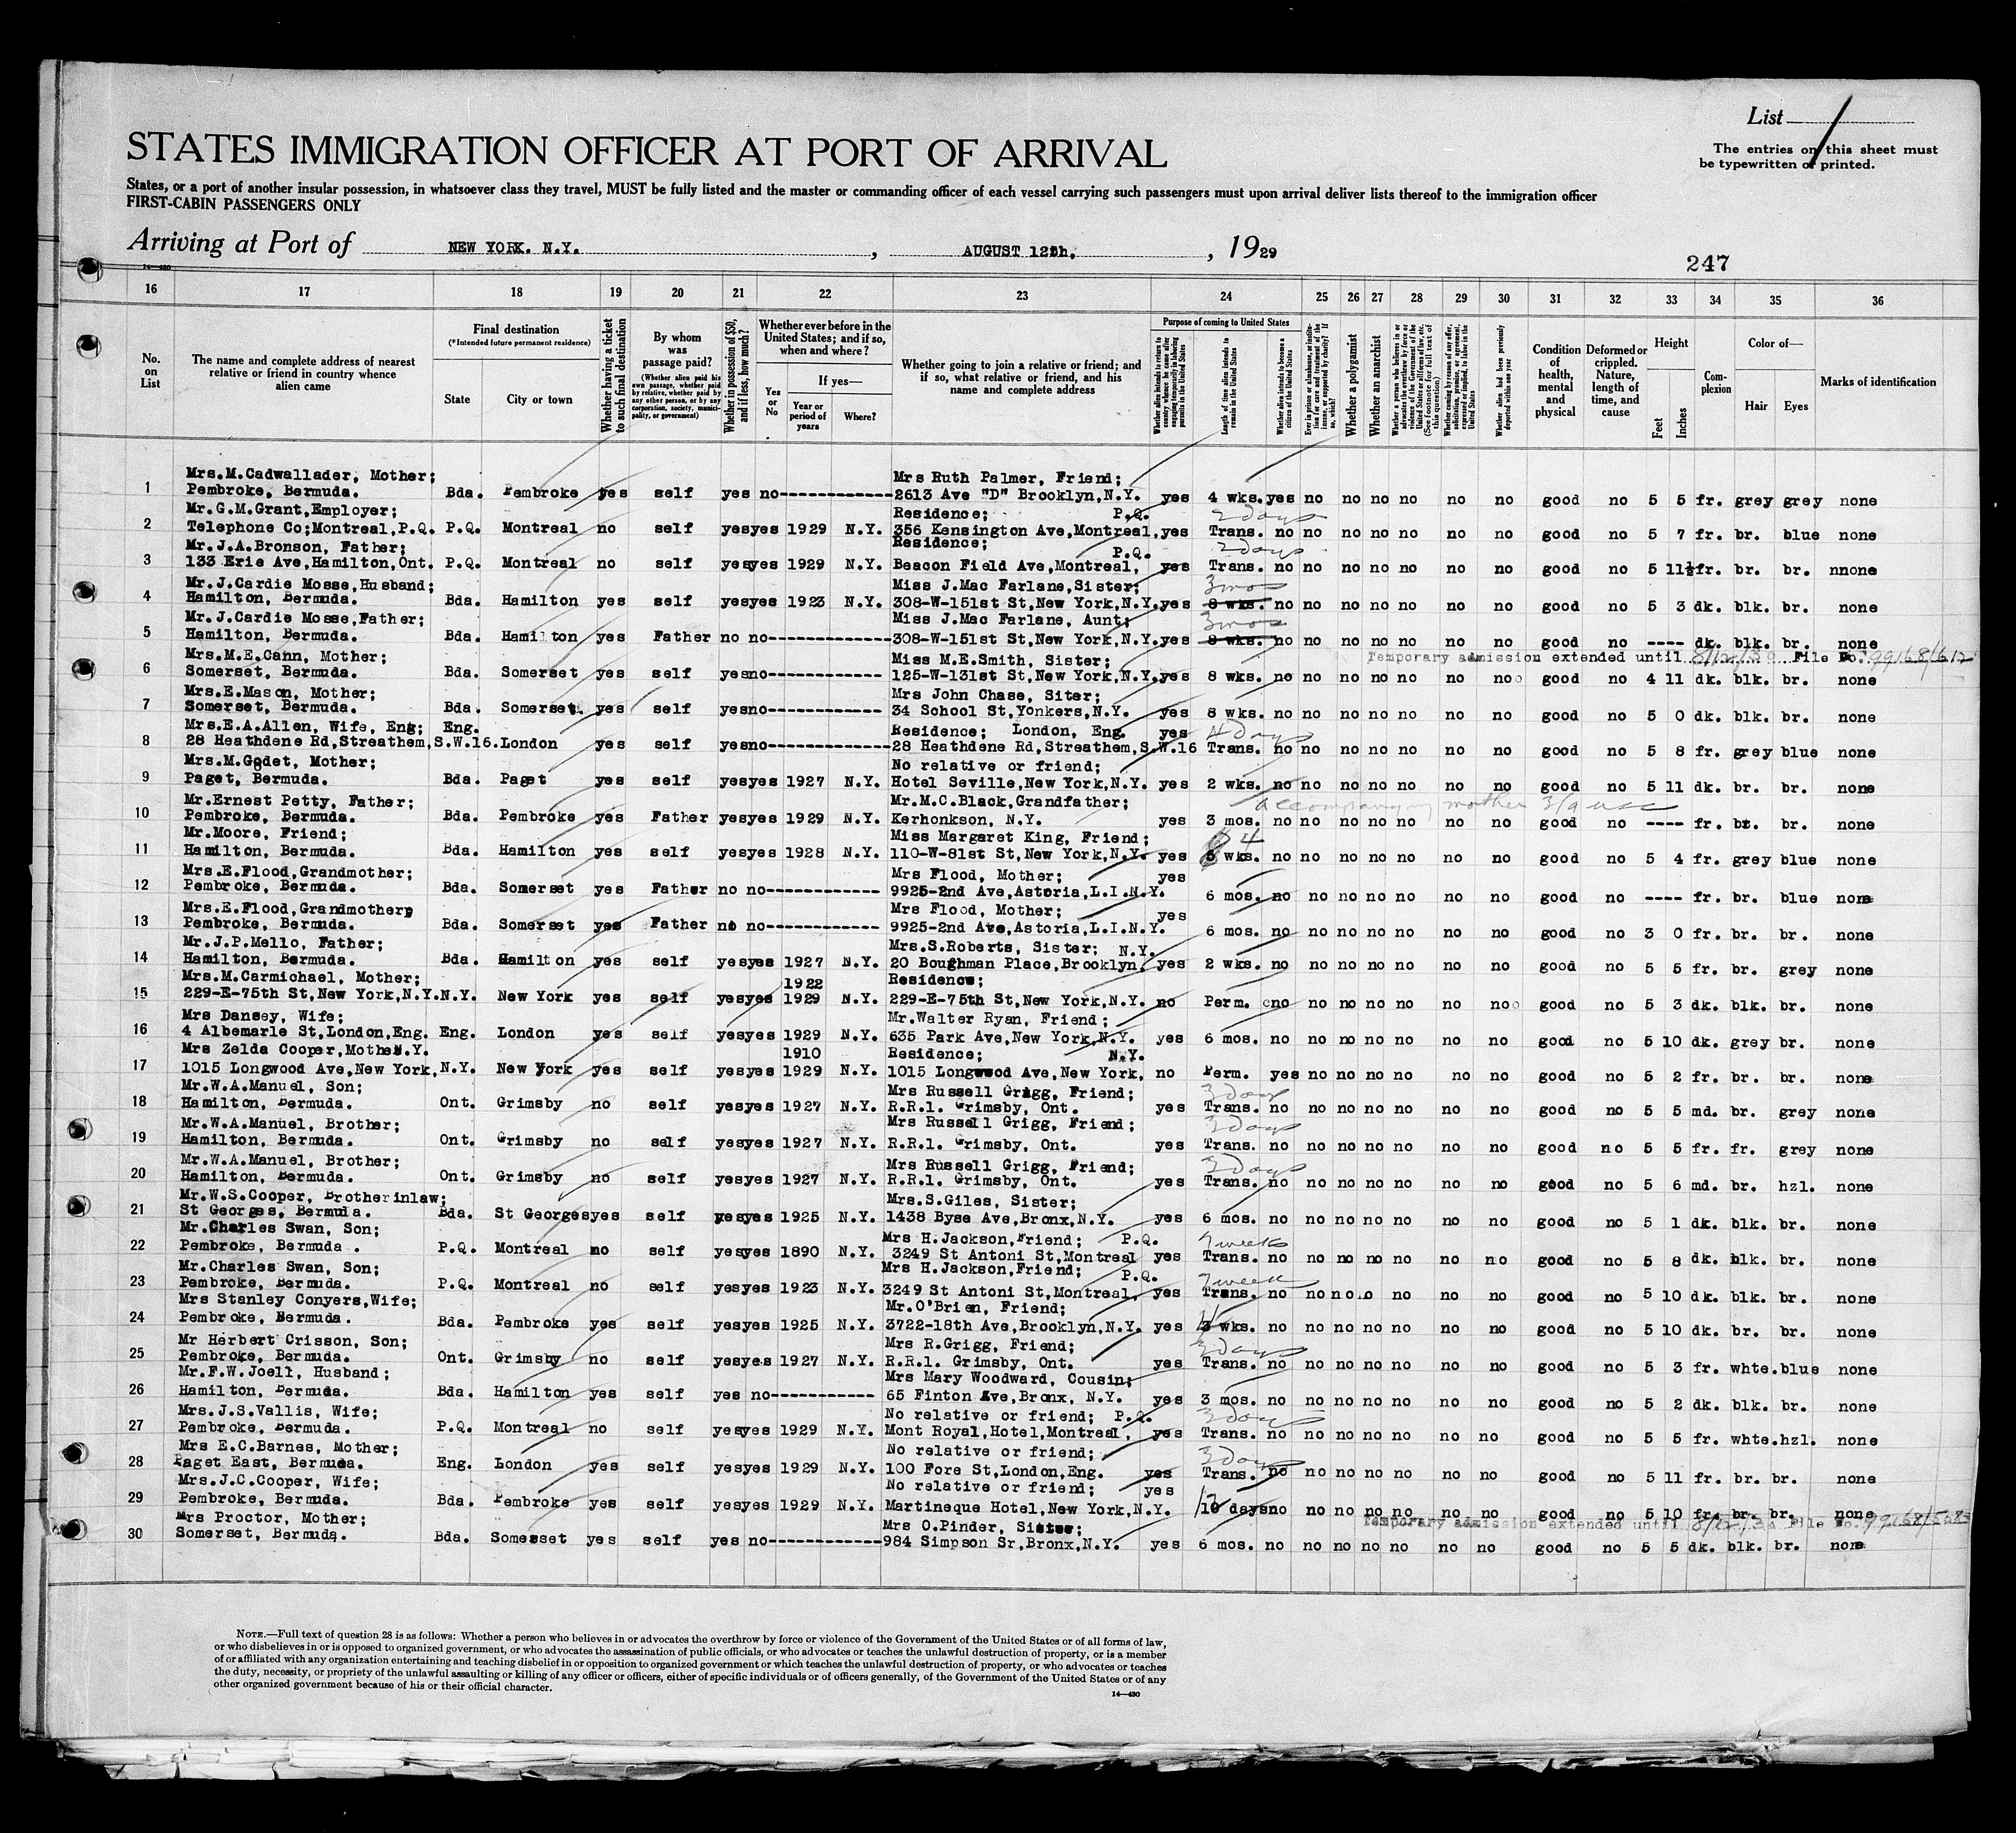 List 1
The entries on this sheet must
be typewritten or printed.
STATES IMMIGRATION OFFICER AT PORT OF ARRIVAL
States, or a port of another insular possession, in whatsoever class they travel, MUST be fully listed and the master or commanding officer of each vessel carrying such passengers must upon arrival deliver lists thereof to the immigration officer
FIRST-CABIN PASSENGERS ONLY
Arriving at Port of NEW YORK. N.Y. , AUGUST 12th. , 1929
14-430
247
16 17 18 19 20 21 22 23 24 25 26 27 28 29 30 31 32 33 34 35 36
No. on List
The name and complete address of nearest relative or friend in country whence alien came
Final destination
(*Intended future permanent residence)
State City or town
Whether having a ticket to such final destination
By whom was passage paid?
(Whether alien paid his own passage, whether paid by relative, whether paid by any other person, or by any corporation, society, municipality, or government)
Whether in possession of $50, and if less, how much?
Whether ever before in the United States; and if so, when and where?
Yes or No
If yes—
Year or period of years Where?
Whether going to join a relative or friend; and if so, what relative or friend, and his name and complete address
Purpose of coming to United States
Length of time alien intends to remain in the United States
Whether alien intends to become a citizen of the United States
Whether a polygamist
Whether an anarchist
Whether alien had been previously deported within one year
Condition of health, mental and physical
Deformed or crippled. Nature, length of time, and cause
Height
Feet Inches
Complexion
Color of—
Hair Eyes
Marks of identification
Mrs.M.Cadwallader, Mother; Mrs Ruth Palmer, Friend;
1 Pembroke, Bermuda. Bda. Pembroke yes self yes no------------ 2613 Ave "D" Brooklyn,N.Y. yes 4 wks. yes no no no no no no good no 5 5 fr. grey grey none
Mr.G.M.Grant,Employer; Residence; P.Q. 2 days
2 Telephone Co;Montreal,P.Q. P.Q. Montreal no self yes yes 1929 N.Y. 356 Kensington Ave,Montreal, yes Trans. no no no no no no no good no 5 7 fr. br. blue none
Mr.J.A.Bronson, Father; Residence; P.Q. 2 days
3 133 Erie Ave,Hamilton,Ont. P.Q. Montreal no self yes yes 1929 N.Y. Beacon Field Ave,Montreal, yes Trans. no no no no no no no good no 5 11½ fr. br. br. nnone
Mr.J.Cardie Mosse,Husband; Miss J.Mac Farlane,Sister; 3 mos
4 Hamilton, Bermuda. Bda. Hamilton yes self yes yes 1923 N.Y. 308-W-151st St,New York,N.Y. yes 8 wks. no no no no no no no good no 5 3 dk. blk. br. none
Mr.J.Cardie Mosse,Father; Miss J.Mac Farlane, Aunt; 3 mos
5 Hamilton, Bermuda. Bda. Hamilton yes Father no no-------------- 308-W-151st St,New York,N.Y. yes 8 wks. no no no no no no no good no ---- dk. blk. br. none
Mrs.M.E.Cann, Mother; Miss M.E.Smith, Sister; Temporary admission extended until 8/12/30 File No. 99168/612
6 Somerset, Bermuda. Bda. Somerset yes self yes no------------ 125-W-131st St,New York,N.Y. yes 8 wks. no no no no no no no good no 4 11 dk. blk. br. none
Mrs.E.Mason, Mother; Mrs John Chase, Siter;
7 Somerset, Bermuda. Bda. Somerset. yes self yes no------------ 34 School St,Yonkers,N.Y. yes 8 wks. no no no no no no no good no 5 0 dk. blk. br. none
Mrs.E.A.Allen, Wife, Eng; Eng. Residence; London, Eng. yes 4 days
8 28 Heathdene Rd,Streathem,S.W.16. London yes self yes no------------ 28 Heathdene Rd,Streathem,S.W.16 Trans. no no no no no no no good no 5 8 fr. grey blue none
Mrs.M.Godet, Mother; No relative or friend;
9 Paget, Bermuda. Bda. Paget yes self yes yes 1927 N.Y. Hotel Seville,New York,N.Y. yes 2 wks. no no no no no no no good no 5 11 dk. br. br. none
Mr.Ernest Petty, Father; Mr.M.C.Black,Grandfather; accompanying mother
10 Pembroke, Bermuda. Bda. Pembroke yes Father yes yes 1929 N.Y. Kerhonkson, N.Y. yes 3 mos. no no no no no no no good no ---- fr. br. br. none
Mr.Moore, Friend; Miss Margaret King, Friend; 4
11 Hamilton, Bermuda. Bda. Hamilton yes self yes yes 1928 N.Y. 110-W-81st St,New York,N.Y. yes wks. no no no no no no no good no 5 4 fr. grey blue none
Mrs.E.Flood,Grandmother; Mrs Flood, Mother; yes
12 Pembroke, Bermuda. Bda. Somerset yes Father no no------------ 9925-2nd Ave,Astoria,L.I.N.Y. 6 mos. no no no no no no no good no ---- fr. br. blue none
Mrs.E.Flood,Grandmother; Mrs Flood, Mother; yes
13 Pembroke, Bermuda. Bda. Somerset yes Father no no------------ 9925-2nd Ave,Astoria,L.I.N.Y. 6 mos. no no no no no no no good no 3 0 fr. br. br. none
Mr.J.P.Mello, Father; Mrs.S.Roberts, Sister; N.Y.
14 Hamilton, Bermuda. Bda. Hamilton yes self yes yes 1927 N.Y. 20 Boughman Place,Brooklyn, yes 2 wks. no no no no no no no good no 5 5 fr. br. grey none
Mrs.M.Carmichael, Mother; 1922 Residence;
15 229-E-75th St,New York,N.Y. N.Y. New York yes self yes yes 1929 N.Y. 229-E-75th St,New York,N.Y. no Perm. no no no no no no no good no 5 3 dk. blk. br. none
Mrs Dansey, Wife; Mr.Walter Ryan, Friend;
16 4 Albemarle St,London,Eng. Eng. London yes self yes yes 1929 N.Y. 635 Park Ave,New York,N.Y. yes 6 mos. no no no no no no no good no 5 10 dk. grey br. none
Mrs Zelda Cooper,Mother N.Y. 1910 Residence; N.Y.
17 1015 Longwood Ave,New York, N.Y. New York yes self yes yes 1929 N.Y. 1015 Longwood Ave,New York, no Perm. yes no no no no no no good no 5 2 fr. br. br. none
Mr.W.A.Manuel, Son; Mrs Russell Grigg, Friend; 3 days
18 Hamilton, Bermuda. Ont. Grimsby no self yes yes 1927 N.Y. R.R.1. Grimsby, Ont. yes Trans. no no no no no no no good no 5 5 md. br. grey none
Mr.W.A.Manuel, Brother; Mrs Russell Grigg, Friend; 3 days
19 Hamilton, Bermuda. Ont. Grimsby no self yes yes 1927 N.Y. R.R.1. Grimsby, Ont. yes Trans. no no no no no no no good no 5 5 fr. fr. grey none
Mr.W.A.Manuel, Brother; Mrs Russell Grigg, Friend; 3 days
20 Hamilton, Bermuda. Ont. Grimsby no self yes yes 1927 N.Y. R.R.1. Grimsby, Ont. yes Trans. no no no no no no no good no 5 6 md. br. hzl. none
Mr.W.S.Cooper, Brotherinlaw; Mrs.S.Giles, Sister;
21 St Georges, Bermuda. Bda. St Georges yes self yes yes 1925 N.Y. 1438 Byse Ave,Bronx,N.Y. yes 6 mos. no no no no no no no good no 5 1 dk. blk. br. none
Mr.Charles Swan, Son; Mrs H.Jackson,Friend; P.Q. week
22 Pembroke, Bermuda. P.Q. Montreal no self yes yes 1890 N.Y. 3249 St Antoni St,Montreal yes Trans. no no no no no no no good no 5 8 dk. blk. br. none
Mr.Charles Swan, Son; Mrs H.Jackson,Friend; P.Q. week
23 Pembroke, Bermuda. P.Q. Montreal no self yes yes 1923 N.Y. 3249 St Antoni St,Montreal, yes Trans. no no no no no no good no 5 10 dk. blk. br. none
Mrs Stanley Conyers,Wife; Mr.O'Brien, Friend;
24 Pembroke, Bermuda. Bda. Pembroke yes self yes yes 1925 N.Y. 3722-18th Ave,Brooklyn,N.Y. yes wks. no no no no no no no good no 5 10 dk. br. br. none
Mr Herbert Crisson, Son; Mrs R.Grigg, Friend; 3 days
25 Pembroke, Bermuda. Ont. Grimsby no self yes yes 1927 N.Y. R.R.1. Grimsby, Ont. yes Trans. no no no no no no no good no 5 3 fr. whte. blue none
Mr.F.W.Joell, Husband; Mrs Mary Woodward, Cousin;
26 Hamilton, Bermuda. Bda. Hamilton yes self yes no----------- 65 Finton Ave,Bronx, N.Y. yes 3 mos. no no no no no no no good no 5 2 dk. blk. br. none
Mrs.J.S.Vallis, Wife; No relative or friend; P.Q. 3 days
27 Pembroke, Bermuda. P.Q. Montreal no self yes yes 1929 N.Y. Mont Royal,Hotel,Montreal, yes Trans. no no no no no no no good no 5 5 fr. whte. hzl. none
Mrs E.C.Barnes, Mother; No relative or friend; 3 days
28 Paget East, Bermuda. Eng. London yes self yes yes 1929 N.Y. 100 Fore St,London,Eng. yes Trans. no no no no no no no good no 5 11 fr. br. br. none
Mrs.J.C.Cooper, Wife; No relative or friend; yes
29 Pembroke, Bermuda. Bda. Pembroke yes self yes yes 1929 N.Y. Martineque Hotel,New York,N.Y. 10 days no no no no no no no good no 5 10 fr. br. br. none
Mrs Proctor, Mother; Mrs O.Pinder, Sister; Temporary admission extended until 8/12/30 File No.
30 Somerset, Bermuda. Bda. Somerset yes self yes no------------- 984 Simpson Sr,Bronx,N.Y. yes 6 mos. no no no no no no no good no 5 5 dk. blk. br. none
NOTE.—Full text of question 28 is as follows: Whether a person who believes in or advocates the overthrow by force or violence of the Government of the United States or of all forms of law,
or who disbelieves in or is opposed to organized government, or who advocates the assassination of public officials, or who advocates or teaches the unlawful destruction of property, or is a member
of or affiliated with any organization entertaining and teaching disbelief in or opposition to organized government or which teaches the unlawful destruction of property, or who advocates or teaches
the duty, necessity, or propriety of the unlawful assaulting or killing of any officer or officers, either of specific individuals or of officers generally, of the Government of the United States or of any
other organized government because of his or their official character.
14—430